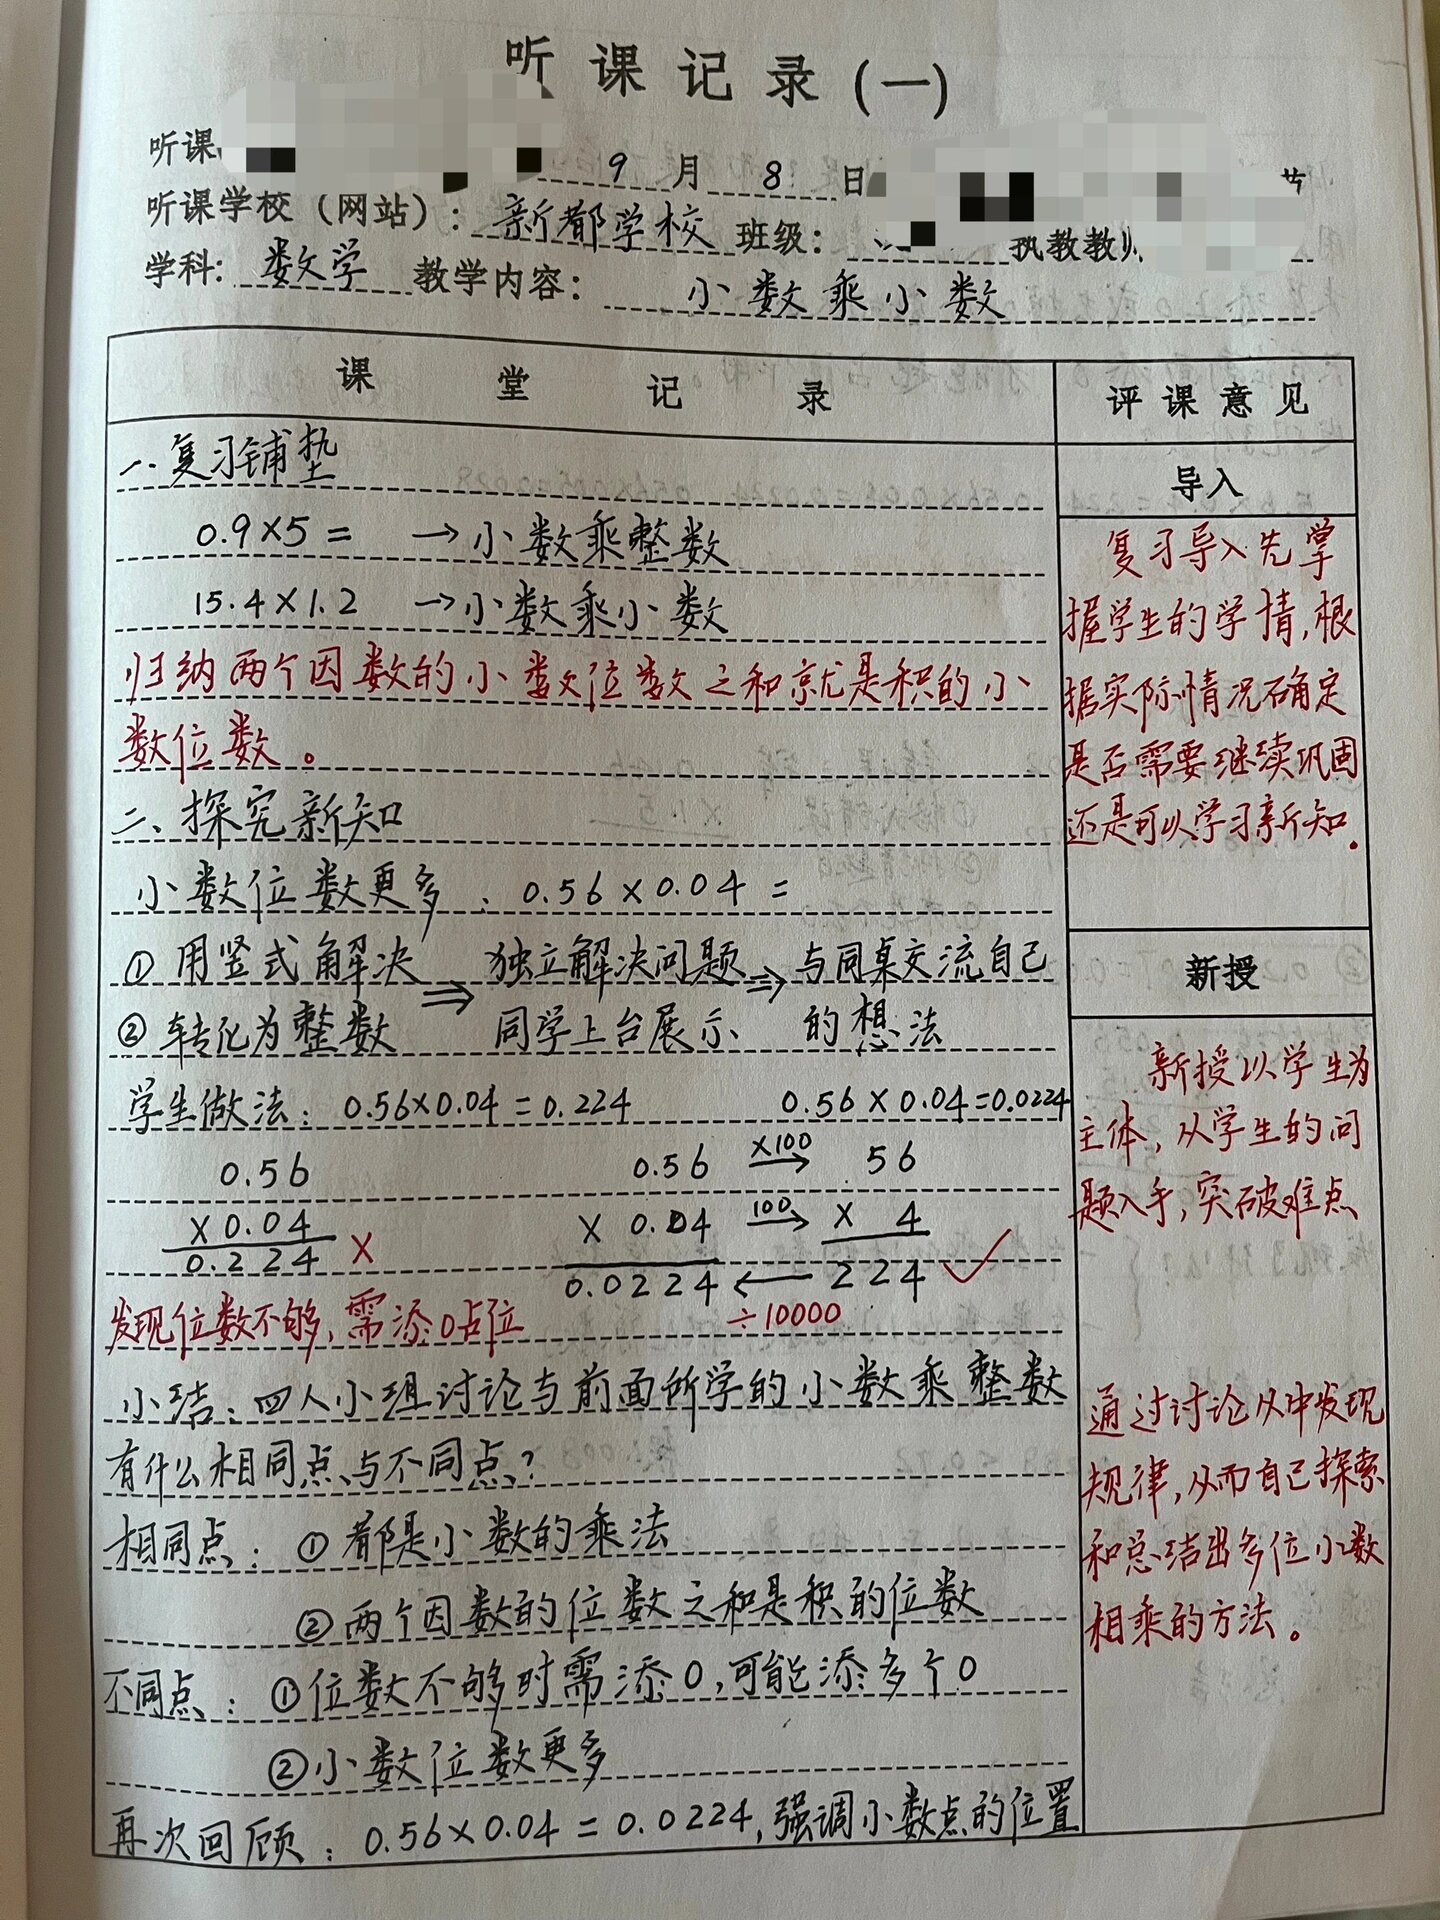 听课记录(一)
听课 9月8日
听课学校（网站）：新都学校 班级： 执教教师
学科：数学 教学内容：小数乘小数
课堂记录 评课意见
一、复习铺垫
0.9×5= →小数乘整数
15.4×1.2 →小数乘小数
归纳两个因数的小数位数之和就是积的小
数位数。
二、探究新知
小数位数更多：0.56×0.04=
①用竖式解决 ⇒ 独立解决问题 ⇒ 与同桌交流自己
②转化为整数 同学上台展示 的想法
学生做法：0.56×0.04=0.224 0.56×0.04=0.0224
0.56 0.56 ×100→ 56
×0.04 ×0.04 100→ × 4
0.224 × 0.0224 ← 224 ✓
发现位数不够，需添0占位 ÷10000
小结：四人小组讨论与前面所学的小数乘整数
有什么相同点与不同点？
相同点：①都是小数的乘法
②两个因数的位数之和是积的位数
不同点：①位数不够时需添0，可能添多个0
②小数位数更多
再次回顾：0.56×0.04=0.0224，强调小数点的位置
导入
复习导入先掌
握学生的学情，根
据实际情况确定
是否需要继续巩固
还是可以学习新知．
新授
新授以学生为
主体，从学生的问
题入手，突破难点
通过讨论从中发现
规律，从而自己探索
和总结出多位小数
相乘的方法。